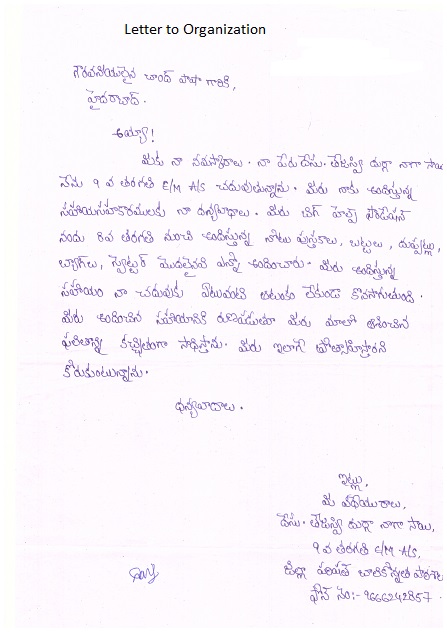 Letter to Organization
గౌరవనీయులైన చాంద్ పాషా గారికి,
హైదరాబాద్.
అయ్యా!
మీకు నా నమస్కారాలు. నా పేరు దేసు. తేజస్వి దుర్గా నాగా సాయి
నేను 9 వ తరగతి E/M A/S చదువుతున్నాను. మీరు నాకు అందిస్తున్న
సహాయసహకారములకు నా ధన్యవాదాలు. మీరు బిగ్ హెల్ప్ ఫౌండేషన్
నందు 8వ తరగతి నుంచి అందిస్తున్న నోటు పుస్తకాలు, బట్టలు, దుప్పట్లు,
బ్యాగ్‌లు, స్వెట్టర్ మొదలైనవి ఎన్నో అందించారు. మీరు అందిస్తున్న
సహాయం నా చదువుకు ఏటువంటి ఆటంకం లేకుండా కొనసాగుతుంది.
మీరు అందించిన సహాయానికి మీరు మాలో ఆశించిన
ఫలితాన్ని కచ్చితంగా సాధిస్తాను. మీరు ఇలాగే ప్రోత్సాహిస్తారని
కోరుకుంటున్నాను.
ధన్యవాదాలు.
ఇట్లు,
మీ విధేయురాలు,
దేసు. తేజస్వి దుర్గా నాగా సాయి,
9 వ తరగతి E/M A/S,
జిల్లా పరిషత్ బాలికోన్నత పాఠశాల
ఫోన్ నెం:- 9666242857.